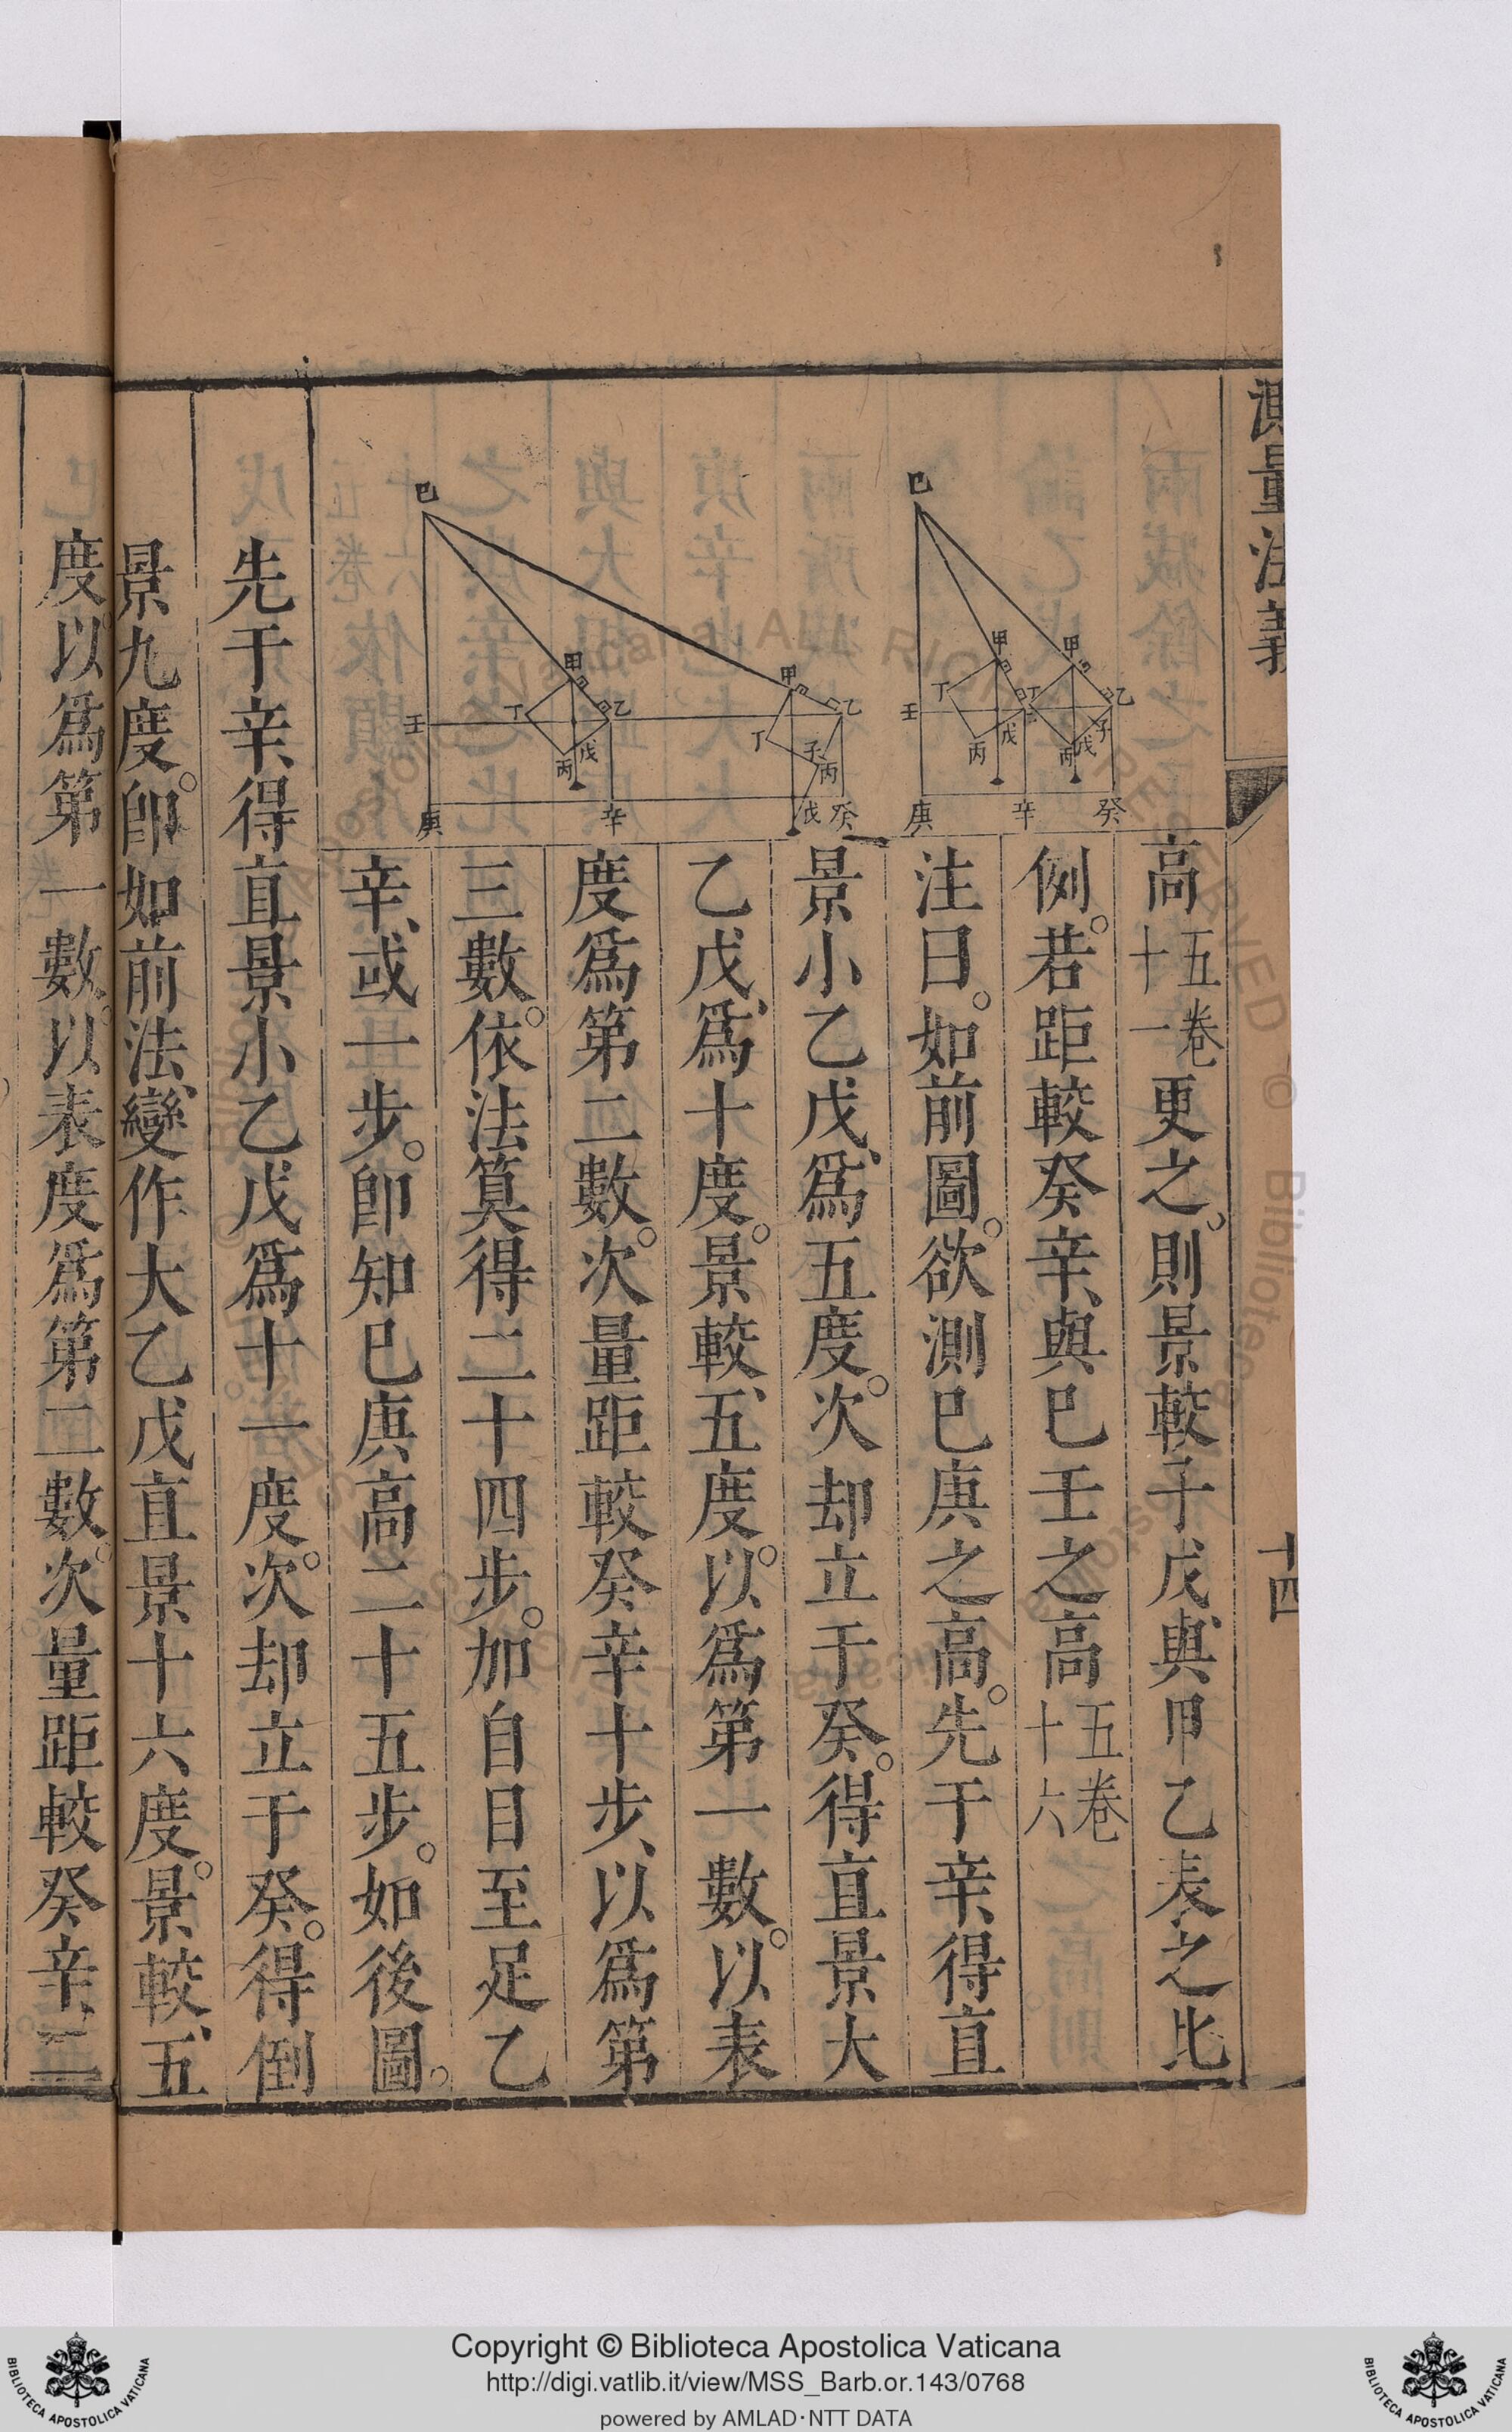 測量法義
十四
高五卷十一更之則景較子戊與甲乙表之比
例。若距較癸辛、與巳壬之高五卷十六
注曰。如前圖。欲測巳庚之高。先于辛、得直
景小乙戊、爲五度。次却立于癸。得直景大
乙戊、爲十度。景較、五度。以爲第一數。以表
度爲第二數。次量距較癸辛十步、以爲第
三數。依法算得二十四步。加自目至足乙
辛、或一步。卽知巳庚高二十五步。如後圖。
先于辛、得直景小乙戊爲十一度。次却立于癸。得倒
景九度。卽如前法、變作大乙戊直景十六度。景較、五
度。以爲第一數。以表度爲第二數。次量距較癸辛、二
巳
甲
甲
乙
丁
丁
壬
丙
戊
丙
戊
子
庚
辛
癸
巳
甲
甲
乙
乙
丁
丁
壬
丙
戊
子
丙
戊
庚
辛
癸
Copyright © Biblioteca Apostolica Vaticana
http://digi.vatlib.it/view/MSS_Barb.or.143/0768
powered by AMLAD·NTT DATA
BIBLIOTECA APOSTOLICA VATICANA
BIBLIOTECA APOSTOLICA VATICANA